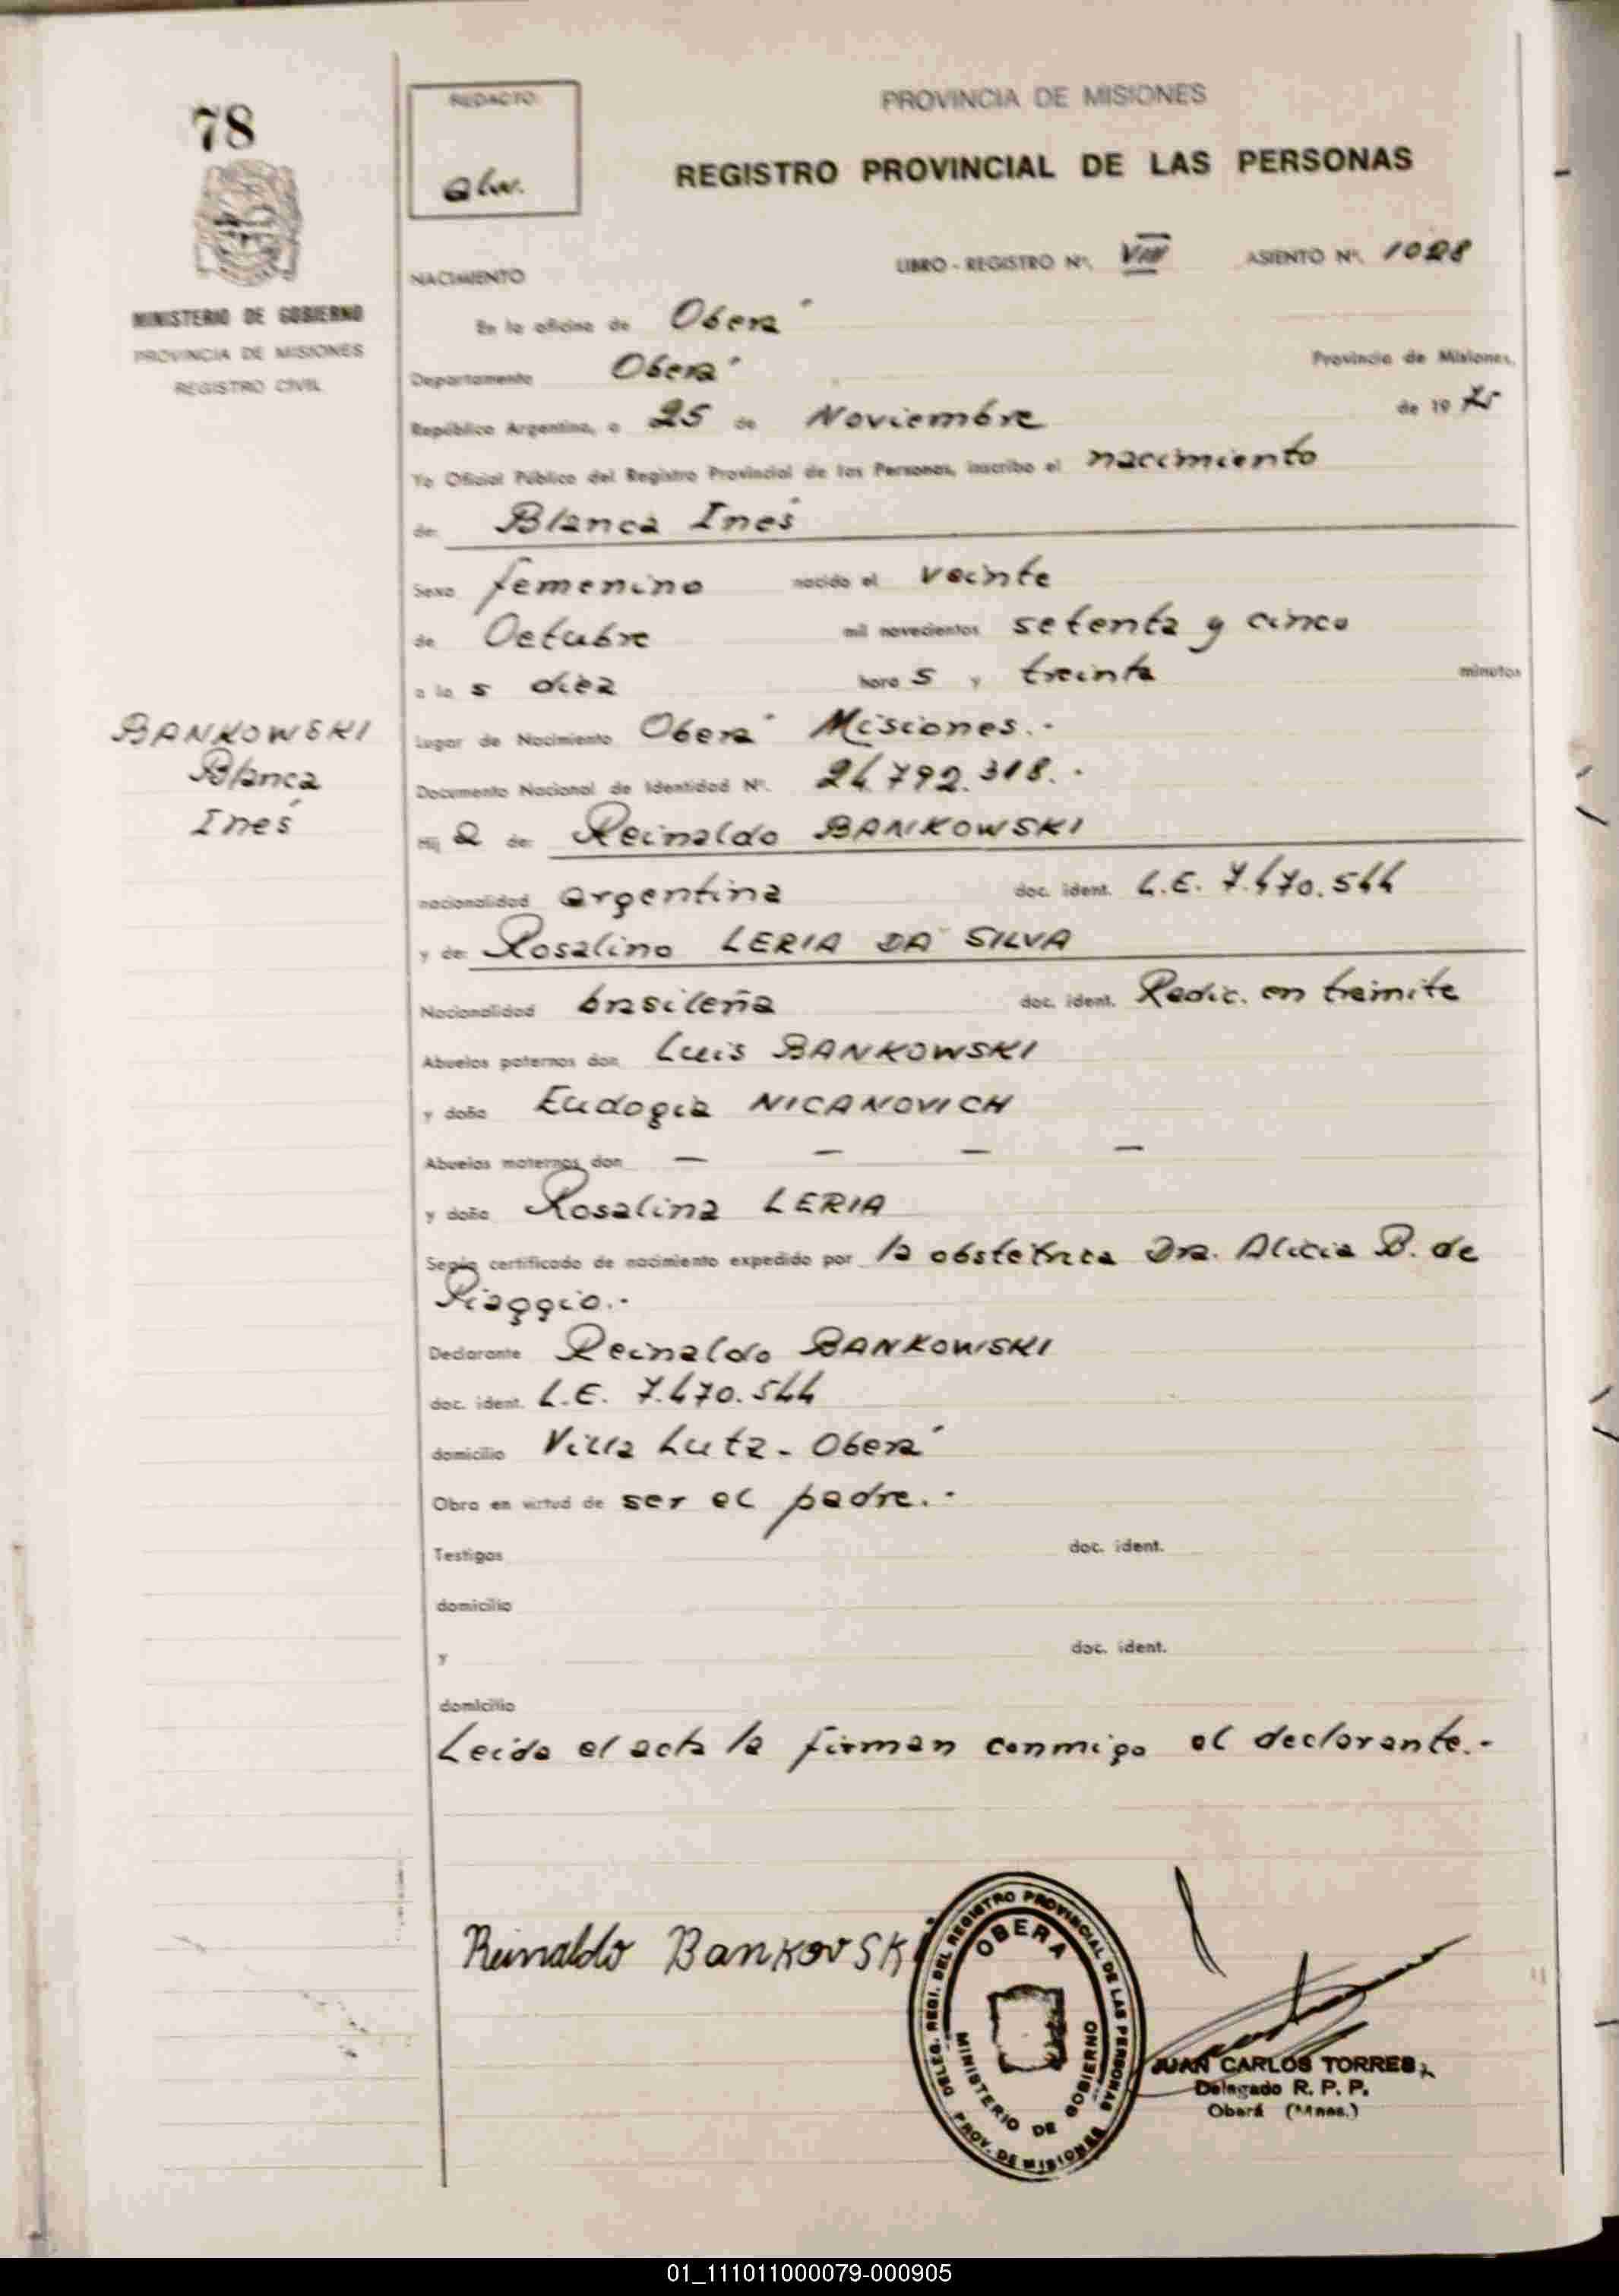 78
REDACTO:
PROVINCIA DE MISIONES
REGISTRO PROVINCIAL DE LAS PERSONAS
MINISTERIO DE GOBIERNO
PROVINCIA DE MISIONES
REGISTRO CIVIL
NACIMIENTO
LIBRO - REGISTRO Nº. VIII ASIENTO Nº. 1028
En la oficina de Oberá
Departamento Oberá Provincia de Misiones,
República Argentina, a 25 de Noviembre de 1975
Yo Oficial Público del Registro Provincial de las Personas, inscribo el nacimiento
de: Blanca Inés
Sexo femenino nacido el veinte
de Octubre mil novecientos setenta y cinco
a la s diez hora s y treinta minutos
Lugar de Nacimiento Oberá Misiones.-
Documento Nacional de Identidad Nº. 24.792.318.-
BANKOWSKI
Blanca
Inés
Hij a de: Reinaldo BANKOWSKI
nacionalidad argentina doc. ident. L.E. 7.470.544
y de: Rosalino LERIA DA SILVA
Nacionalidad brasileña doc. ident. Radic. en tramite
Abuelos paternos don Luis BANKOWSKI
y doña Eudogia NICANOVICH
Abuelos maternos don — — — —
y doña Rosalina LERIA
Según certificado de nacimiento expedido por la obstetrica Dra. Alicia B. de
Piaggio.-
Declarante Reinaldo BANKOWSKI
doc. ident. L.E. 7.470.544
domicilio Villa Lutz - Oberá
Obra en virtud de ser el padre.-
Testigos doc. ident.
domicilio
y doc. ident.
domicilio
Leida el acta la firman conmigo el declarante.-
Reinaldo Bankovski
DELEG. REGI. DEL REGISTRO PROVINCIAL DE LAS PERSONAS
OBERA
MINISTERIO DE GOBIERNO
PROV. DE MISIONES
JUAN CARLOS TORRES
Delegado R. P. P.
Oberá (Mnes.)
01_111011000079-000905